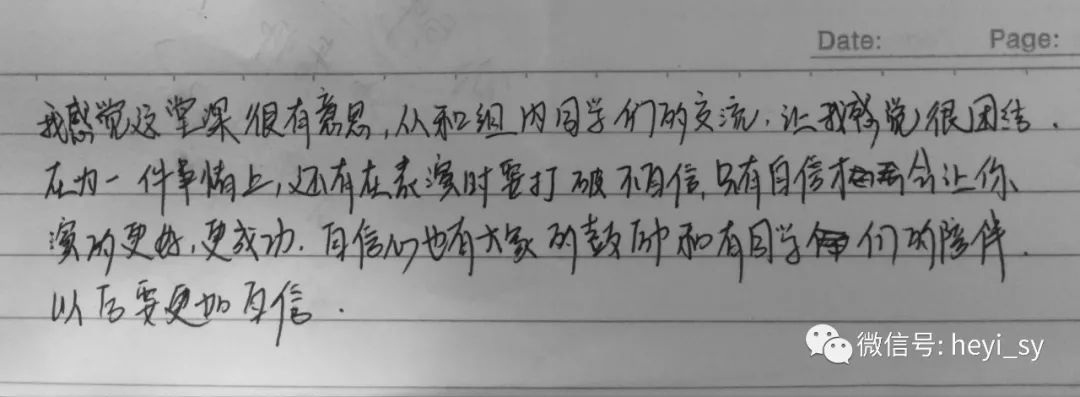 Date: Page:
我感觉这堂课很有意思,从和组内同学们的交流,让我感觉很团结.
在为一件事情上,还有在表演时要打破不自信,只有自信才会让你
演的更好,更成功.自信心也有大家的鼓励和有同学们的陪伴.
以后要更加自信.
微信号: heyi_sy